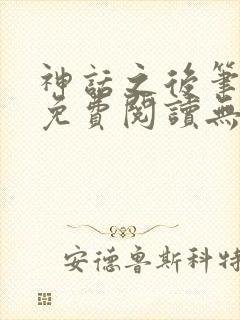 神話之後筆
免費閱讀無
安德魯斯科特